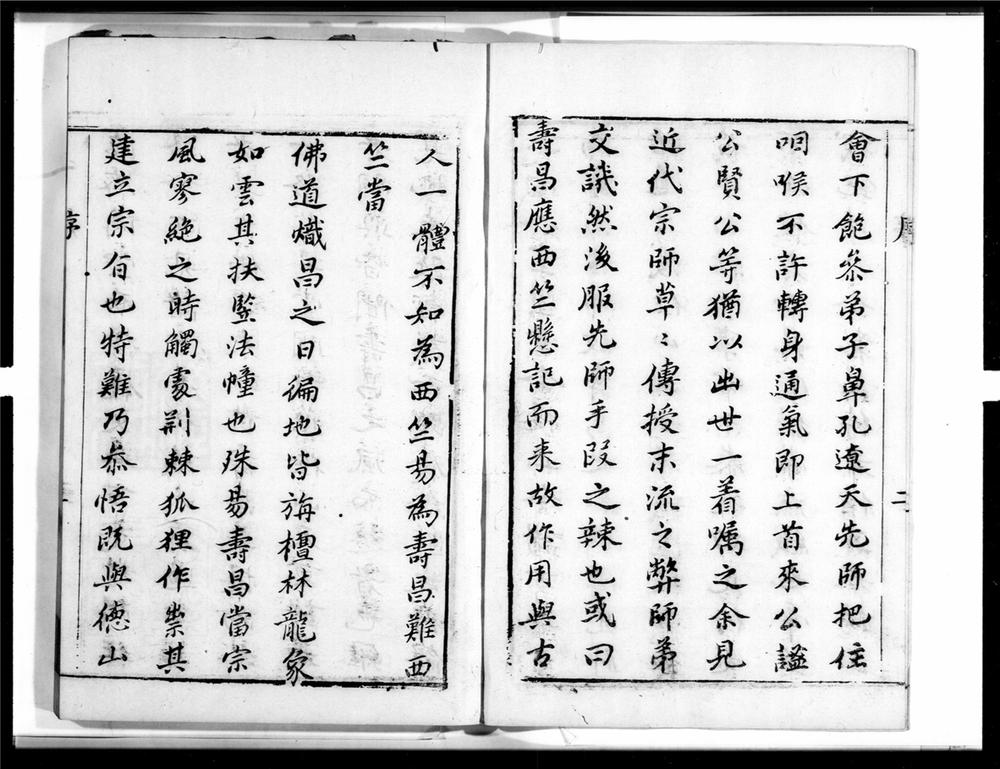 會下飽叅弟子鼻孔遼天先師把住
咽喉不許轉身通氣即上首來公謐
公賢公等猶以出世一着嘱之余見
近代宗師草〻傳授末流之弊師弟
交譏然後服先師手段之辣也或曰
壽昌應西竺懸記而来故作用與古
序
二
人一體不知為西竺易為壽昌難西
竺當
佛道熾昌之日徧地皆旃檀林龍象
如雲其扶竪法幢也殊易壽昌當宗
風寥絶之時觸處荆棘狐狸作祟其
建立宗旨也特難乃叅悟既與德山
序